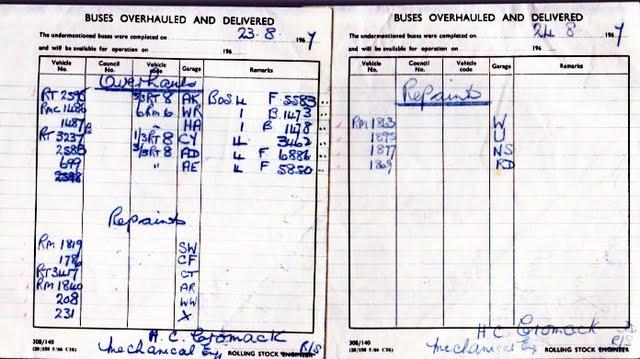 BUSES OVERHAULED AND DELIVERED
The undermentioned buses were completed on 23.8. 1967
and will be available for operation on 196
Vehicle No. Council No. Vehicle code Garage Remarks
Overhauls
RT 2595 3/3RT8 AK BOS 4 F 5583
RMC 1486 6RM6 WR 1 B.1473
1487 " HA 1 B 1478
RT 3237 1/3RT8 CY 4. 3462
2583 3/3RT8 AD 4 F 6886
699 " AE 4 F 5850
2598
Repaints
RM 1819 SW
178 CF
RT 3417 CT
RM 1840 AR
208 WW
231 X
H.C. Cromack
Mechanical Eng R/S
308/140
ROLLING STOCK ENGINEER
BUSES OVERHAULED AND DELIVERED
The undermentioned buses were completed on 24 8 1967
and will be available for operation on 196
Vehicle No. Council No. Vehicle code Garage Remarks
Repaints
RM 1863 W
1895 U
1877 NS
1869 RD
H C Cromack
Mechanical Eng R/S
308/140
ROLLING STOCK ENGINEER